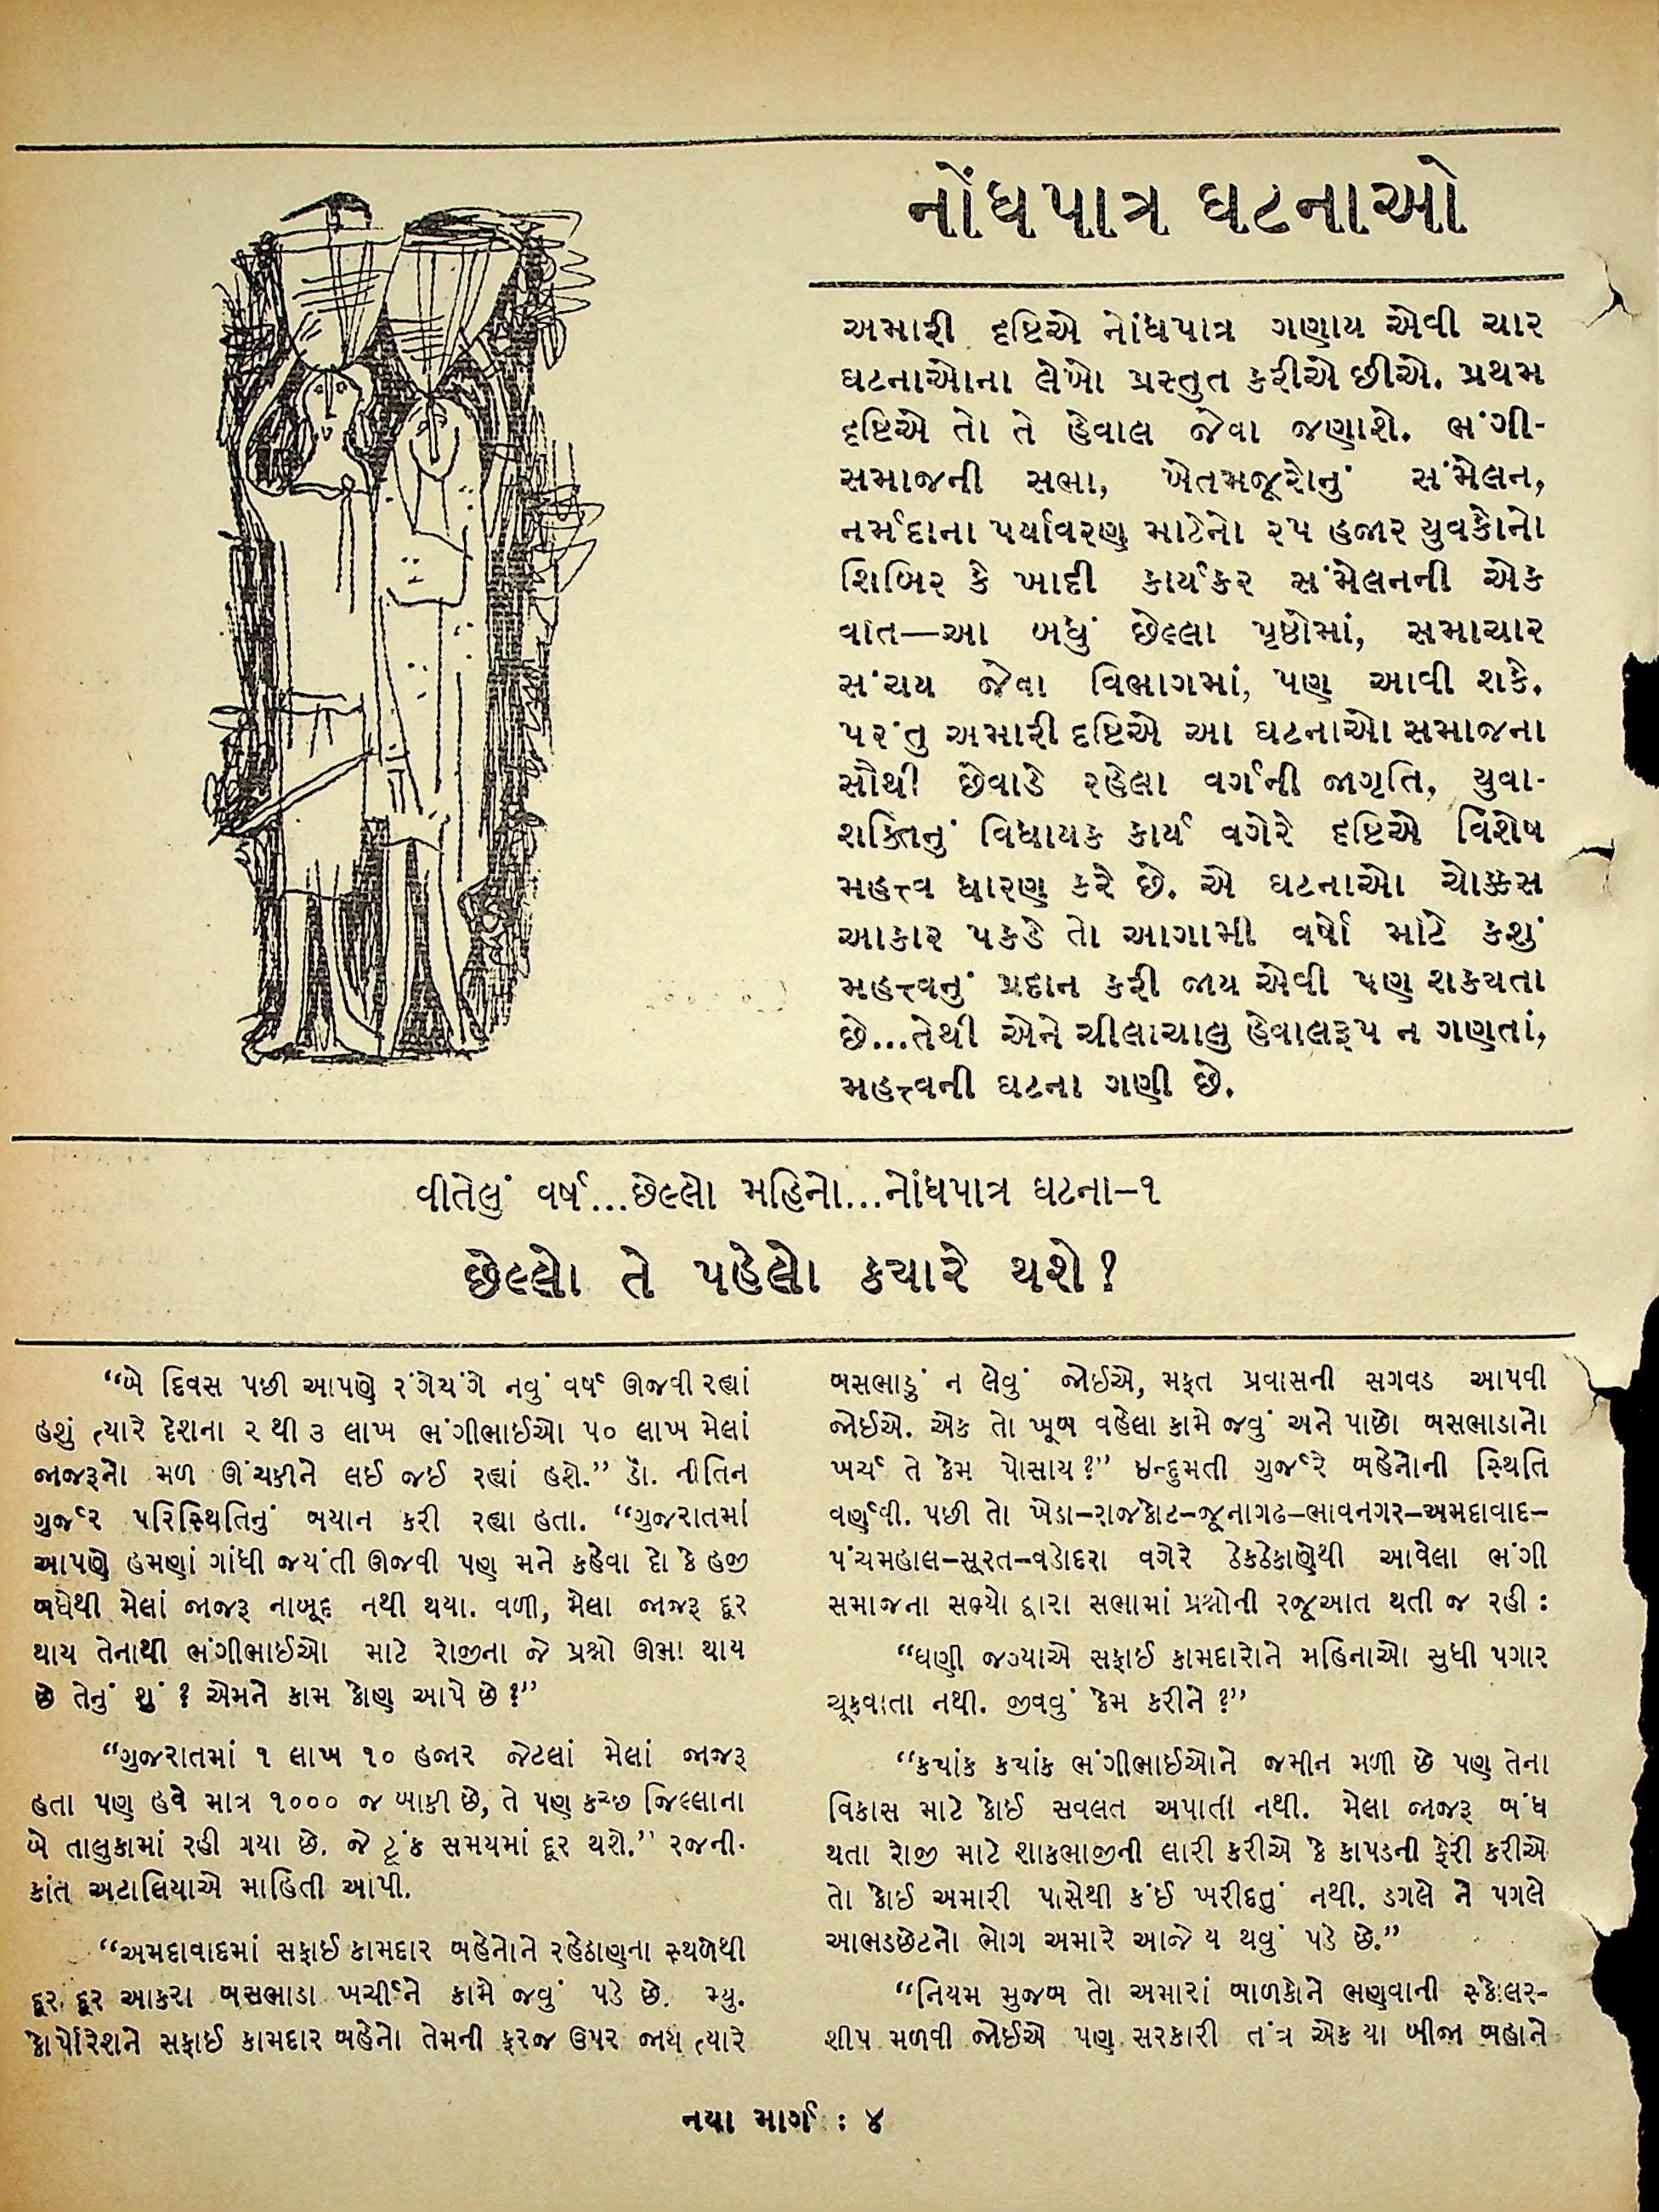 નોંધપાત્ર ઘટનાઓ
અમારી દૃષ્ટિએ નોંધપાત્ર ગણાય એવી ચાર
ઘટનાઓના લેખો પ્રસ્તુત કરીએ છીએ. પ્રથમ
દૃષ્ટિએ તો તે હેવાલ જેવા જણાશે. ભંગી-
સમાજની સભા, ખેતમજૂરોનું સંમેલન,
નર્મદાના પર્યાવરણ માટેનો ૨૫ હજાર યુવકોનો
શિબિર કે ખાદી કાર્યકર સંમેલનની એક
વાત—આ બધું છેલ્લા પૃષ્ઠોમાં, સમાચાર
સંચય જેવા વિભાગમાં, પણ આવી શકે.
પરંતુ અમારી દૃષ્ટિએ આ ઘટનાઓ સમાજના
સૌથી છેવાડે રહેલા વર્ગની જાગૃતિ, યુવા-
શક્તિનું વિધાયક કાર્ય વગેરે દૃષ્ટિએ વિશેષ
મહત્ત્વ ધારણ કરે છે. એ ઘટનાઓ ચોક્કસ
આકાર પકડે તો આગામી વર્ષો માટે કશું
મહત્ત્વનું પ્રદાન કરી જાય એવી પણ શકયતા
છે...તેથી એને ચીલાચાલુ હેવાલરૂપ ન ગણતાં,
મહત્ત્વની ઘટના ગણી છે.
વીતેલું વર્ષ...છેલ્લો મહિનો...નોંધપાત્ર ઘટના–૧
છેલ્લો તે પહેલો કયારે થશે?
“બે દિવસ પછી આપણે રંગેચંગે નવું વર્ષ ઊજવી રહ્યાં
હશું ત્યારે દેશના ૨ થી ૩ લાખ ભંગીભાઈઓ ૫૦ લાખ મેલાં
જાજરૂનો મળ ઊંચકીને લઈ જઈ રહ્યાં હશે.” ડૉ. નીતિન
ગુર્જર પરિસ્થિતિનું બયાન કરી રહ્યા હતા. “ગુજરાતમાં
આપણે હમણાં ગાંધી જયંતી ઊજવી પણ મને કહેવા દો કે હજી
બધેથી મેલાં જાજરૂ નાબૂદ નથી થયા. વળી, મેલા જાજરૂ દૂર
થાય તેનાથી ભંગીભાઈઓ માટે રોજીના જે પ્રશ્નો ઊભા થાય
છે તેનું શું? એમને કામ કોણ આપે છે?”
“ગુજરાતમાં ૧ લાખ ૧૦ હજાર જેટલાં મેલાં જાજરૂ
હતા પણ હવે માત્ર ૧૦૦૦ જ બાકી છે, તે પણ કચ્છ જિલ્લાના
બે તાલુકામાં રહી ગયા છે. જે ટૂંક સમયમાં દૂર થશે.” રજની-
કાંત અટાલિયાએ માહિતી આપી.
“અમદાવાદમાં સફાઈ કામદાર બહેનોને રહેઠાણના સ્થળેથી
દૂર દૂર આકરા બસભાડા ખર્ચીને કામે જવું પડે છે. મ્યુ.
કોર્પોરેશને સફાઈ કામદાર બહેનો તેમની ફરજ ઉપર જાય ત્યારે
બસભાડું ન લેવું જોઈએ, મફત પ્રવાસની સગવડ આપવી
જોઈએ. એક તો ખૂબ વહેલા કામે જવું અને પાછો બસભાડાનો
ખર્ચ તે કેમ પોસાય?” ઇન્દુમતી ગુર્જરે બહેનોની સ્થિતિ
વર્ણવી. પછી તો ખેડા–રાજકોટ–જૂનાગઢ–ભાવનગર–અમદાવાદ–
પંચમહાલ–સૂરત–વડોદરા વગેરે ઠેકઠેકાણેથી આવેલા ભંગી
સમાજના સભ્યો દ્વારા સભામાં પ્રશ્નોની રજૂઆત થતી જ રહી :
“ઘણી જગ્યાએ સફાઈ કામદારોને મહિનાઓ સુધી પગાર
ચૂકવાતા નથી. જીવવું કેમ કરીને?”
“કયાંક કયાંક ભંગીભાઈઓને જમીન મળી છે પણ તેના
વિકાસ માટે કોઈ સવલત અપાતી નથી. મેલા જાજરૂ બંધ
થતા રોજી માટે શાકભાજીની લારી કરીએ કે કાપડની ફેરી કરીએ
તો કોઈ અમારી પાસેથી કંઈ ખરીદતું નથી. ડગલે ને પગલે
આભડછેટનો ભોગ અમારે આજે ય થવું પડે છે.”
“નિયમ મુજબ તો અમારાં બાળકોને ભણવાની સ્કોલર-
શીપ મળવી જોઈએ પણ સરકારી તંત્ર એક યા બીજા બહાને
નયા માર્ગ : ૪